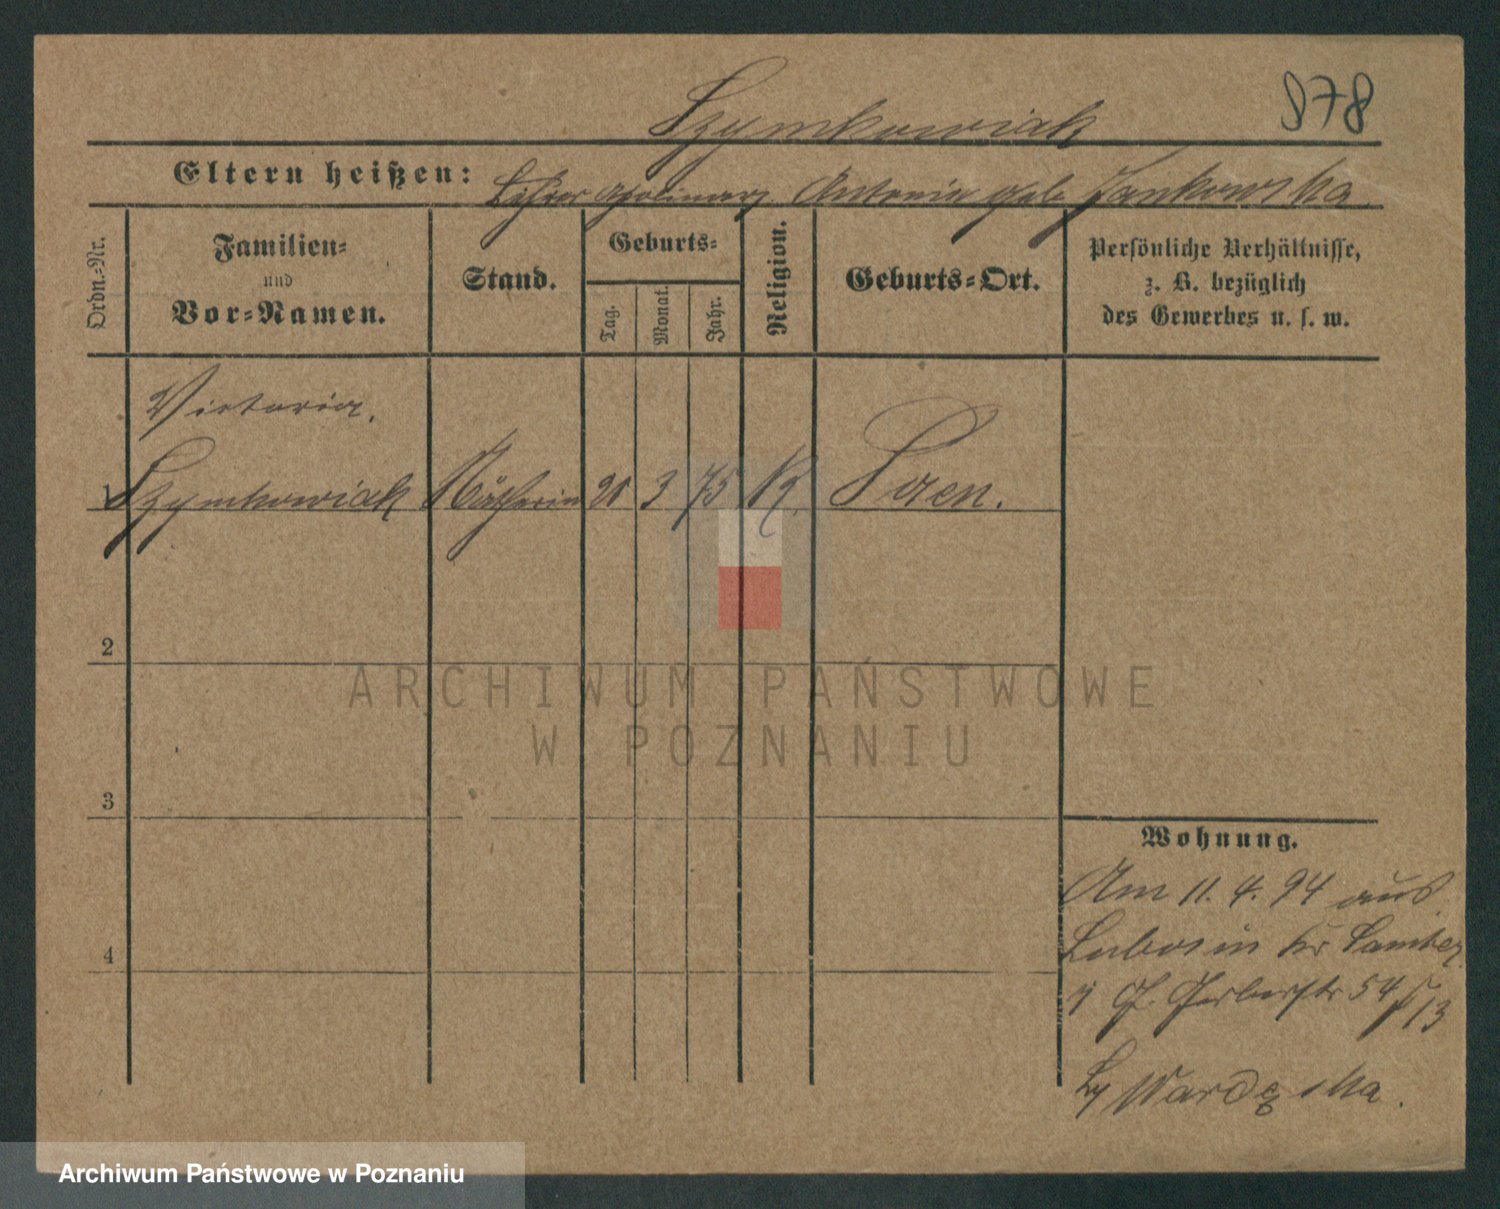 Szymkowiak 878
Eltern heißen: Lehrer Apolinary Antonin geb. Jankowska
Ordn.-Nr.
Familien-
und
Vor-Namen.
Stand.
Geburts-
Tag.
Monat.
Jahr.
Religion.
Geburts-Ort.
Persönliche Verhältnisse,
z. B. bezüglich
des Gewerbes u. s. w.
Victoria.
1 Szymkowiak Nätherin 21 3 75 K.
2
3
4
Wohnung.
Am 11. 4. 94 aus
Lubosin Kr Samter
Gerberstr 54
by Wardęska.
ARCHIWUM PAŃSTWOWE
W POZNANIU
Archiwum Państwowe w Poznaniu